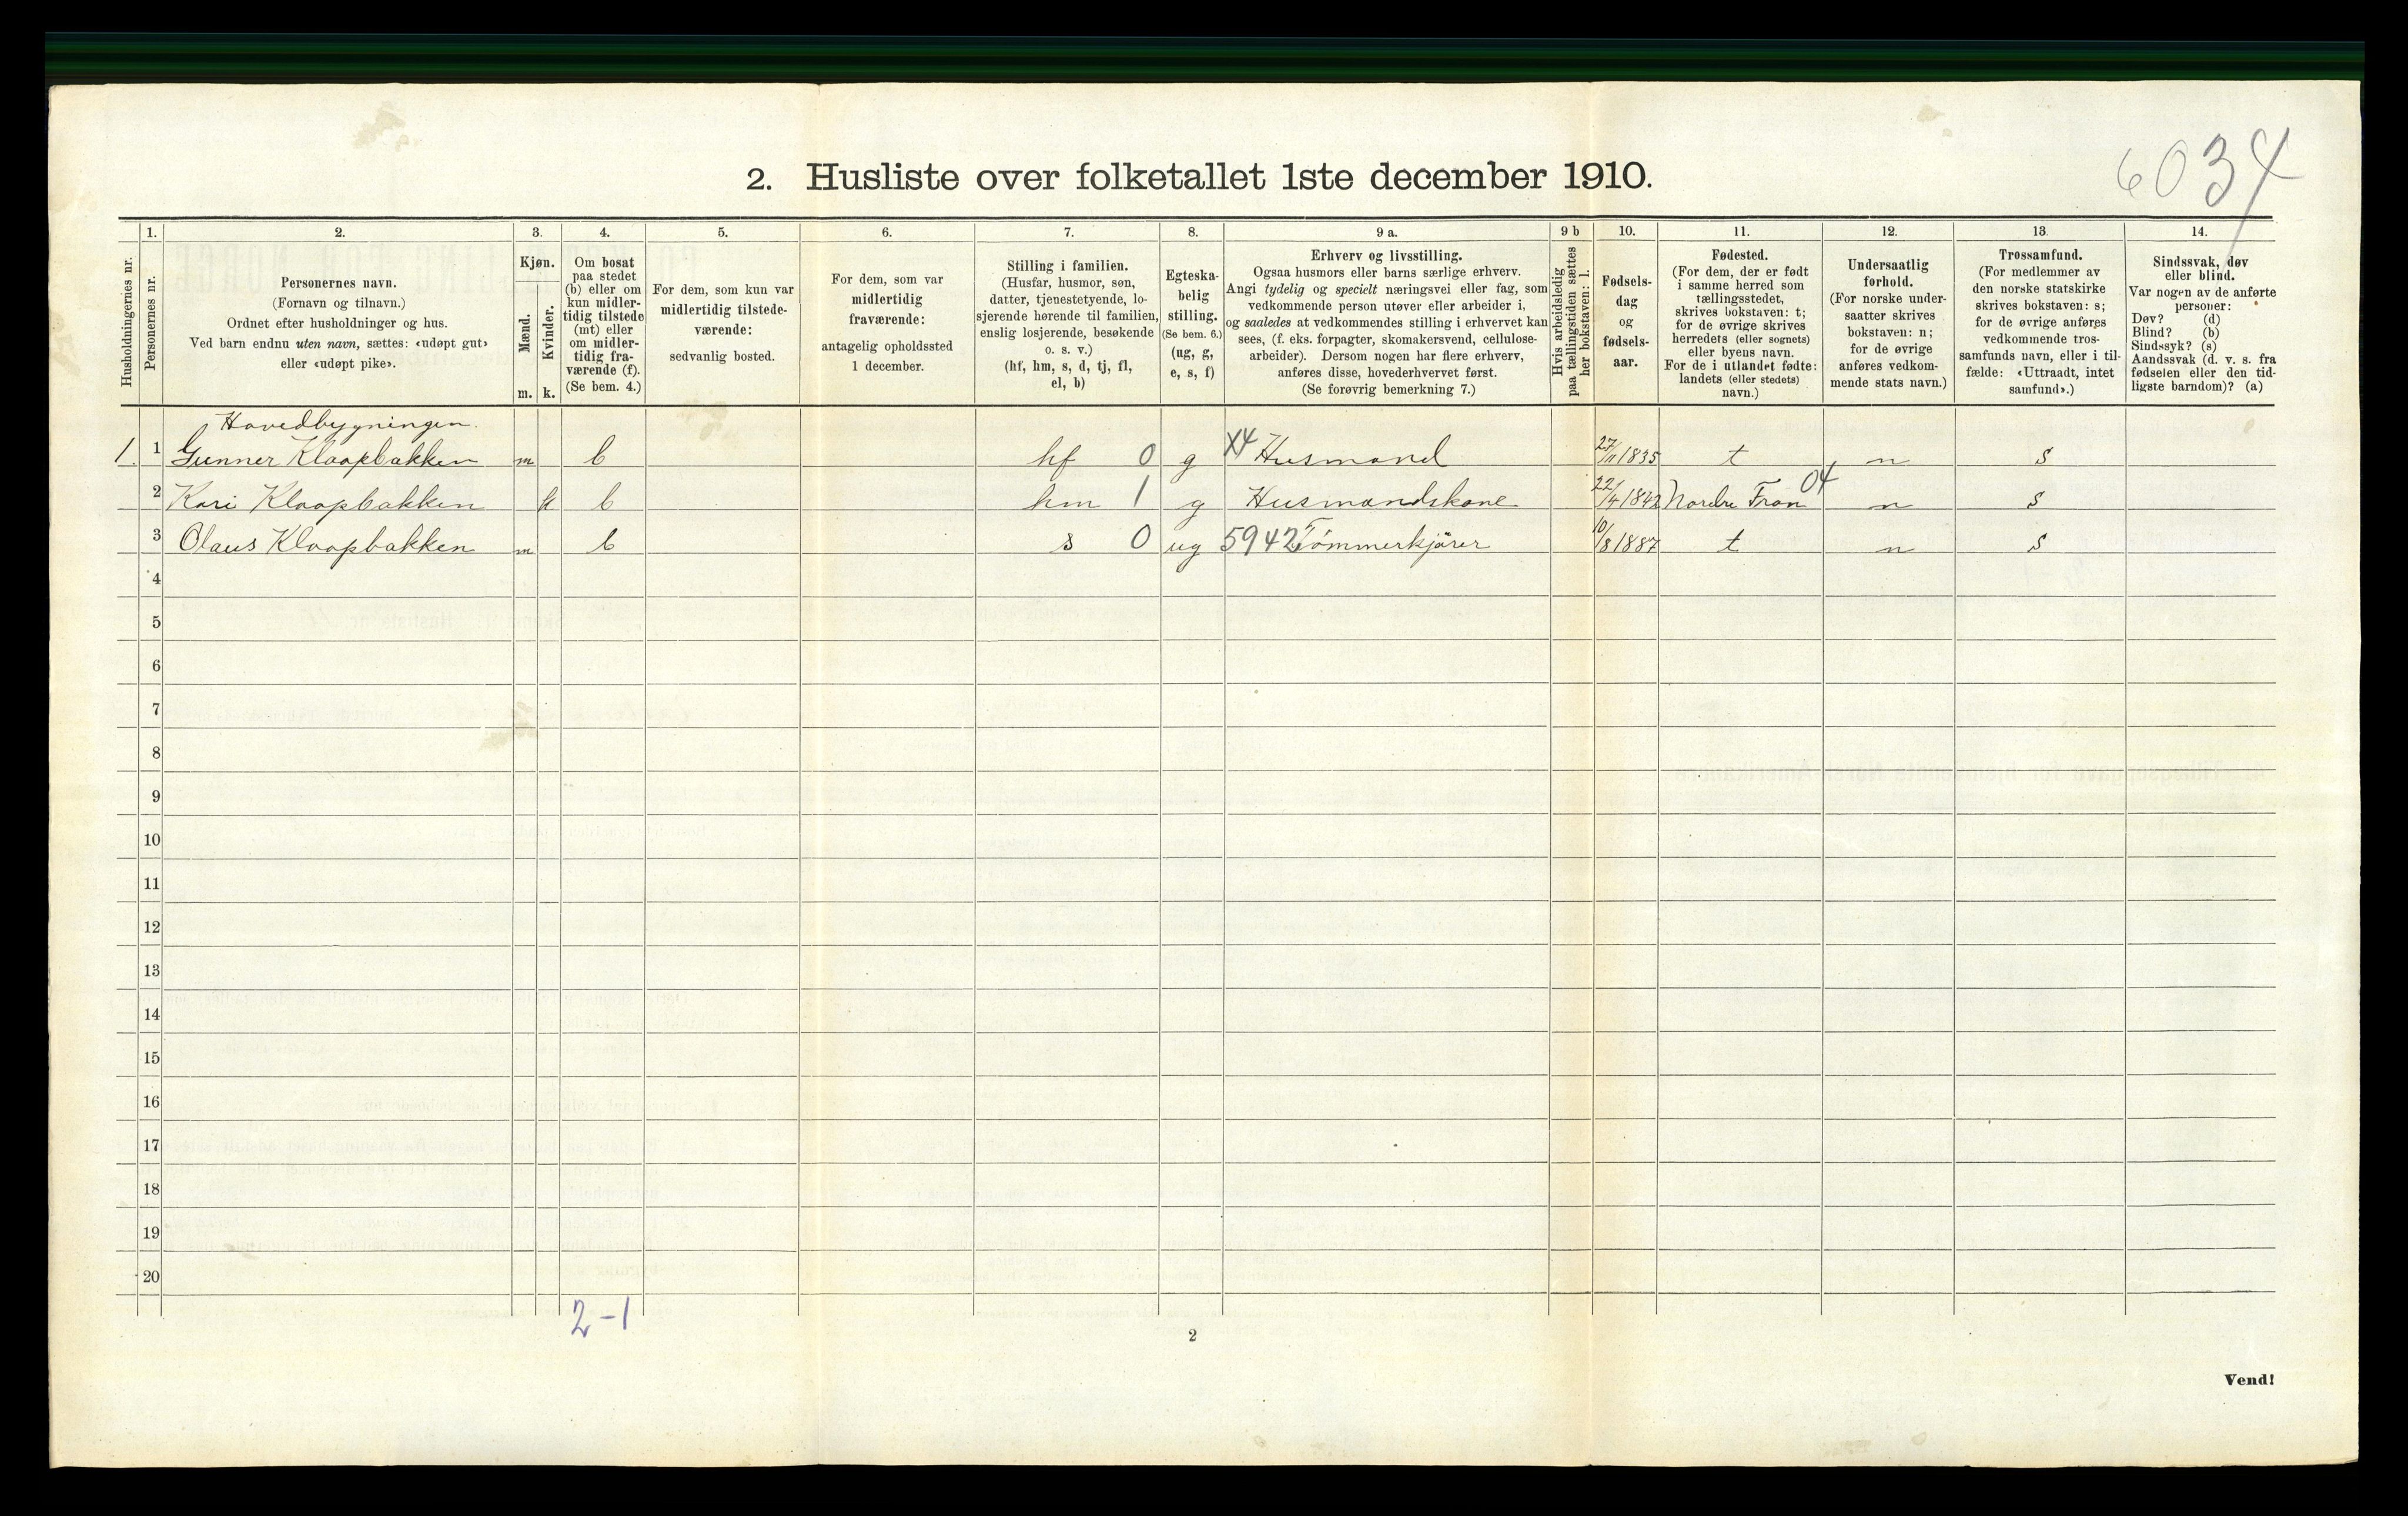 6034
2. Husliste over folketallet 1ste december 1910.
Husholdningernes nr.
1.
Personernes nr.
2.
Personernes navn.
(Fornavn og tilnavn.)
Ordnet efter husholdninger og hus.
Ved barn endnu uten navn, sættes: «udøpt gut»
eller «udøpt pike».
3.
Kjøn.
Mænd.
Kvinder.
m. k.
4.
Om bosat
paa stedet
(b) eller om
kun midler-
tidig tilstede
(mt) eller
om midler-
tidig fra-
værende (f).
(Se bem. 4.)
5.
For dem, som kun var
midlertidig tilstede-
værende:
sedvanlig bosted.
6.
For dem, som var
midlertidig
fraværende:
antagelig opholdssted
1 december.
7.
Stilling i familien.
(Husfar, husmor, søn,
datter, tjenestetyende, lo-
sjerende hørende til familien,
enslig losjerende, besøkende
o. s. v.)
(hf, hm, s, d, tj, fl,
el, b)
8.
Egteska-
belig
stilling.
(Se bem. 6.)
(ug, g,
e, s, f)
9 a.
Erhverv og livsstilling.
Ogsaa husmors eller barns særlige erhverv.
Angi tydelig og specielt næringsvei eller fag, som
vedkommende person utøver eller arbeider i,
og saaledes at vedkommendes stilling i erhvervet kan
sees, (f. eks. forpagter, skomakersvend, cellulose-
arbeider). Dersom nogen har flere erhverv,
anføres disse, hovederhvervet først.
(Se forøvrig bemerkning 7.)
9 b
Hvis arbeidsledig
paa tællingstiden sættes
her bokstaven: l.
10.
Fødsels-
dag
og
fødsels-
aar.
11.
Fødested.
(For dem, der er født
i samme herred som
tællingsstedet,
skrives bokstaven: t;
for de øvrige skrives
herredets (eller sognets)
eller byens navn.
For de i utlandet fødte:
landets (eller stedets)
navn.)
12.
Undersaatlig
forhold.
(For norske under-
saatter skrives
bokstaven: n;
for de øvrige
anføres vedkom-
mende stats navn.)
13.
Trossamfund.
(For medlemmer av
den norske statskirke
skrives bokstaven: s;
for de øvrige anføres
vedkommende tros-
samfunds navn, eller i til-
fælde: «Uttraadt, intet
samfund».)
14.
Sindssvak, døv
eller blind.
Var nogen av de anførte
personer:
Døv? (d)
Blind? (b)
Sindssyk? (s)
Aandssvak (d. v. s. fra
fødselen eller den tid-
ligste barndom)? (a)
Hovedbygningen.
1. 1 Gunner Klaapbakken m b hf 0 g X4 Husmand 27/11 1835 t n s
2 Kari Klaapbakken k b hm 1 g Husmandskone 22/4 1842 Nordre Fron 04 n s
3 Olaus Klaapbakken m b s 0 ug 5942 Tømmerkjører 10/8 1887 t n s
4
5
6
7
8
9
10
11
12
13
14
15
16
17
18
19
20
2-1
2
Vend!